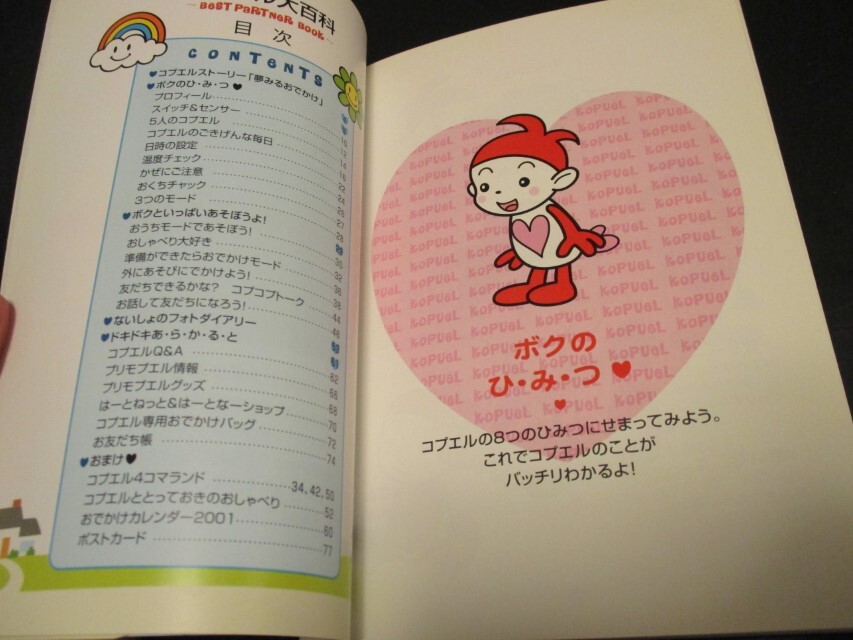 ル大百科
～BEST PARTNER BOOK～
目次
CONTENTS
♥コプエルストーリー「夢みるおでかけ」
♥ボクのひ・み・つ♥
プロフィール
スイッチ&センサー 10
5人のコプエル 12
コプエルのごきげんな毎日 14
日時の設定 16
温度チェック 18
かぜにご注意 22
おくちチャック 24
3つのモード 26
♥ボクといっぱいあそぼうよ!
おうちモードであそぼう! 28
おしゃべり大好き
準備ができたらおでかけモード 30
外にあそびにでかけよう! 32
友だちできるかな? コプコプトーク 36
お話して友だちになろう! 38
♥ないしょのフォトダイアリー 44
♥ドキドキあ・ら・か・る・と
コプエルQ&A
プリモプエル情報 62
プリモプエルグッズ 66
はーとねっと&はーとなーショップ 68
コプエル専用おでかけバッグ 70
お友だち帳 72
♥おまけ♥ 74
コプエル4コマランド 34,42,50
コプエルととっておきのおしゃべり 52
おでかけカレンダー2001 60
ポストカード 77
KOPUeL
ボクの
ひ・み・つ♥
コプエルの8つのひみつにせまってみよう。
これでコプエルのことが
バッチリわかるよ!